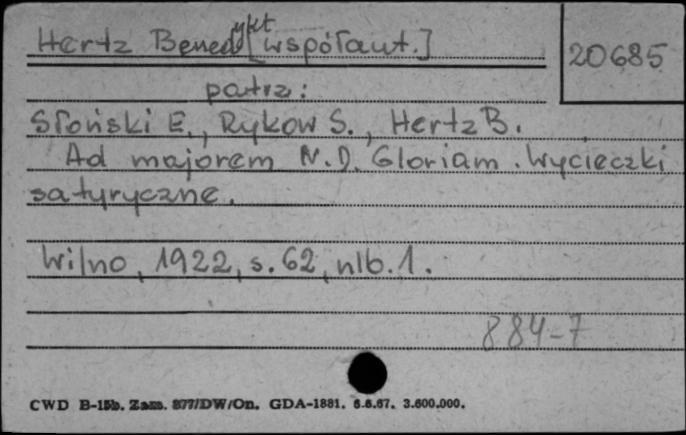 Hertz Benedykt [współaut.]
20685
patrz:
Słoński E., Rykow S., Hertz B.
Ad majorem N.D. Gloriam. Wycieczki
satyryczne.
Wilno, 1922, s. 62, nlb. 1.
884-7
CWD B-15b. Zam. 877/DW/On. GDA-1881. 6.6.67. 3.600.000.